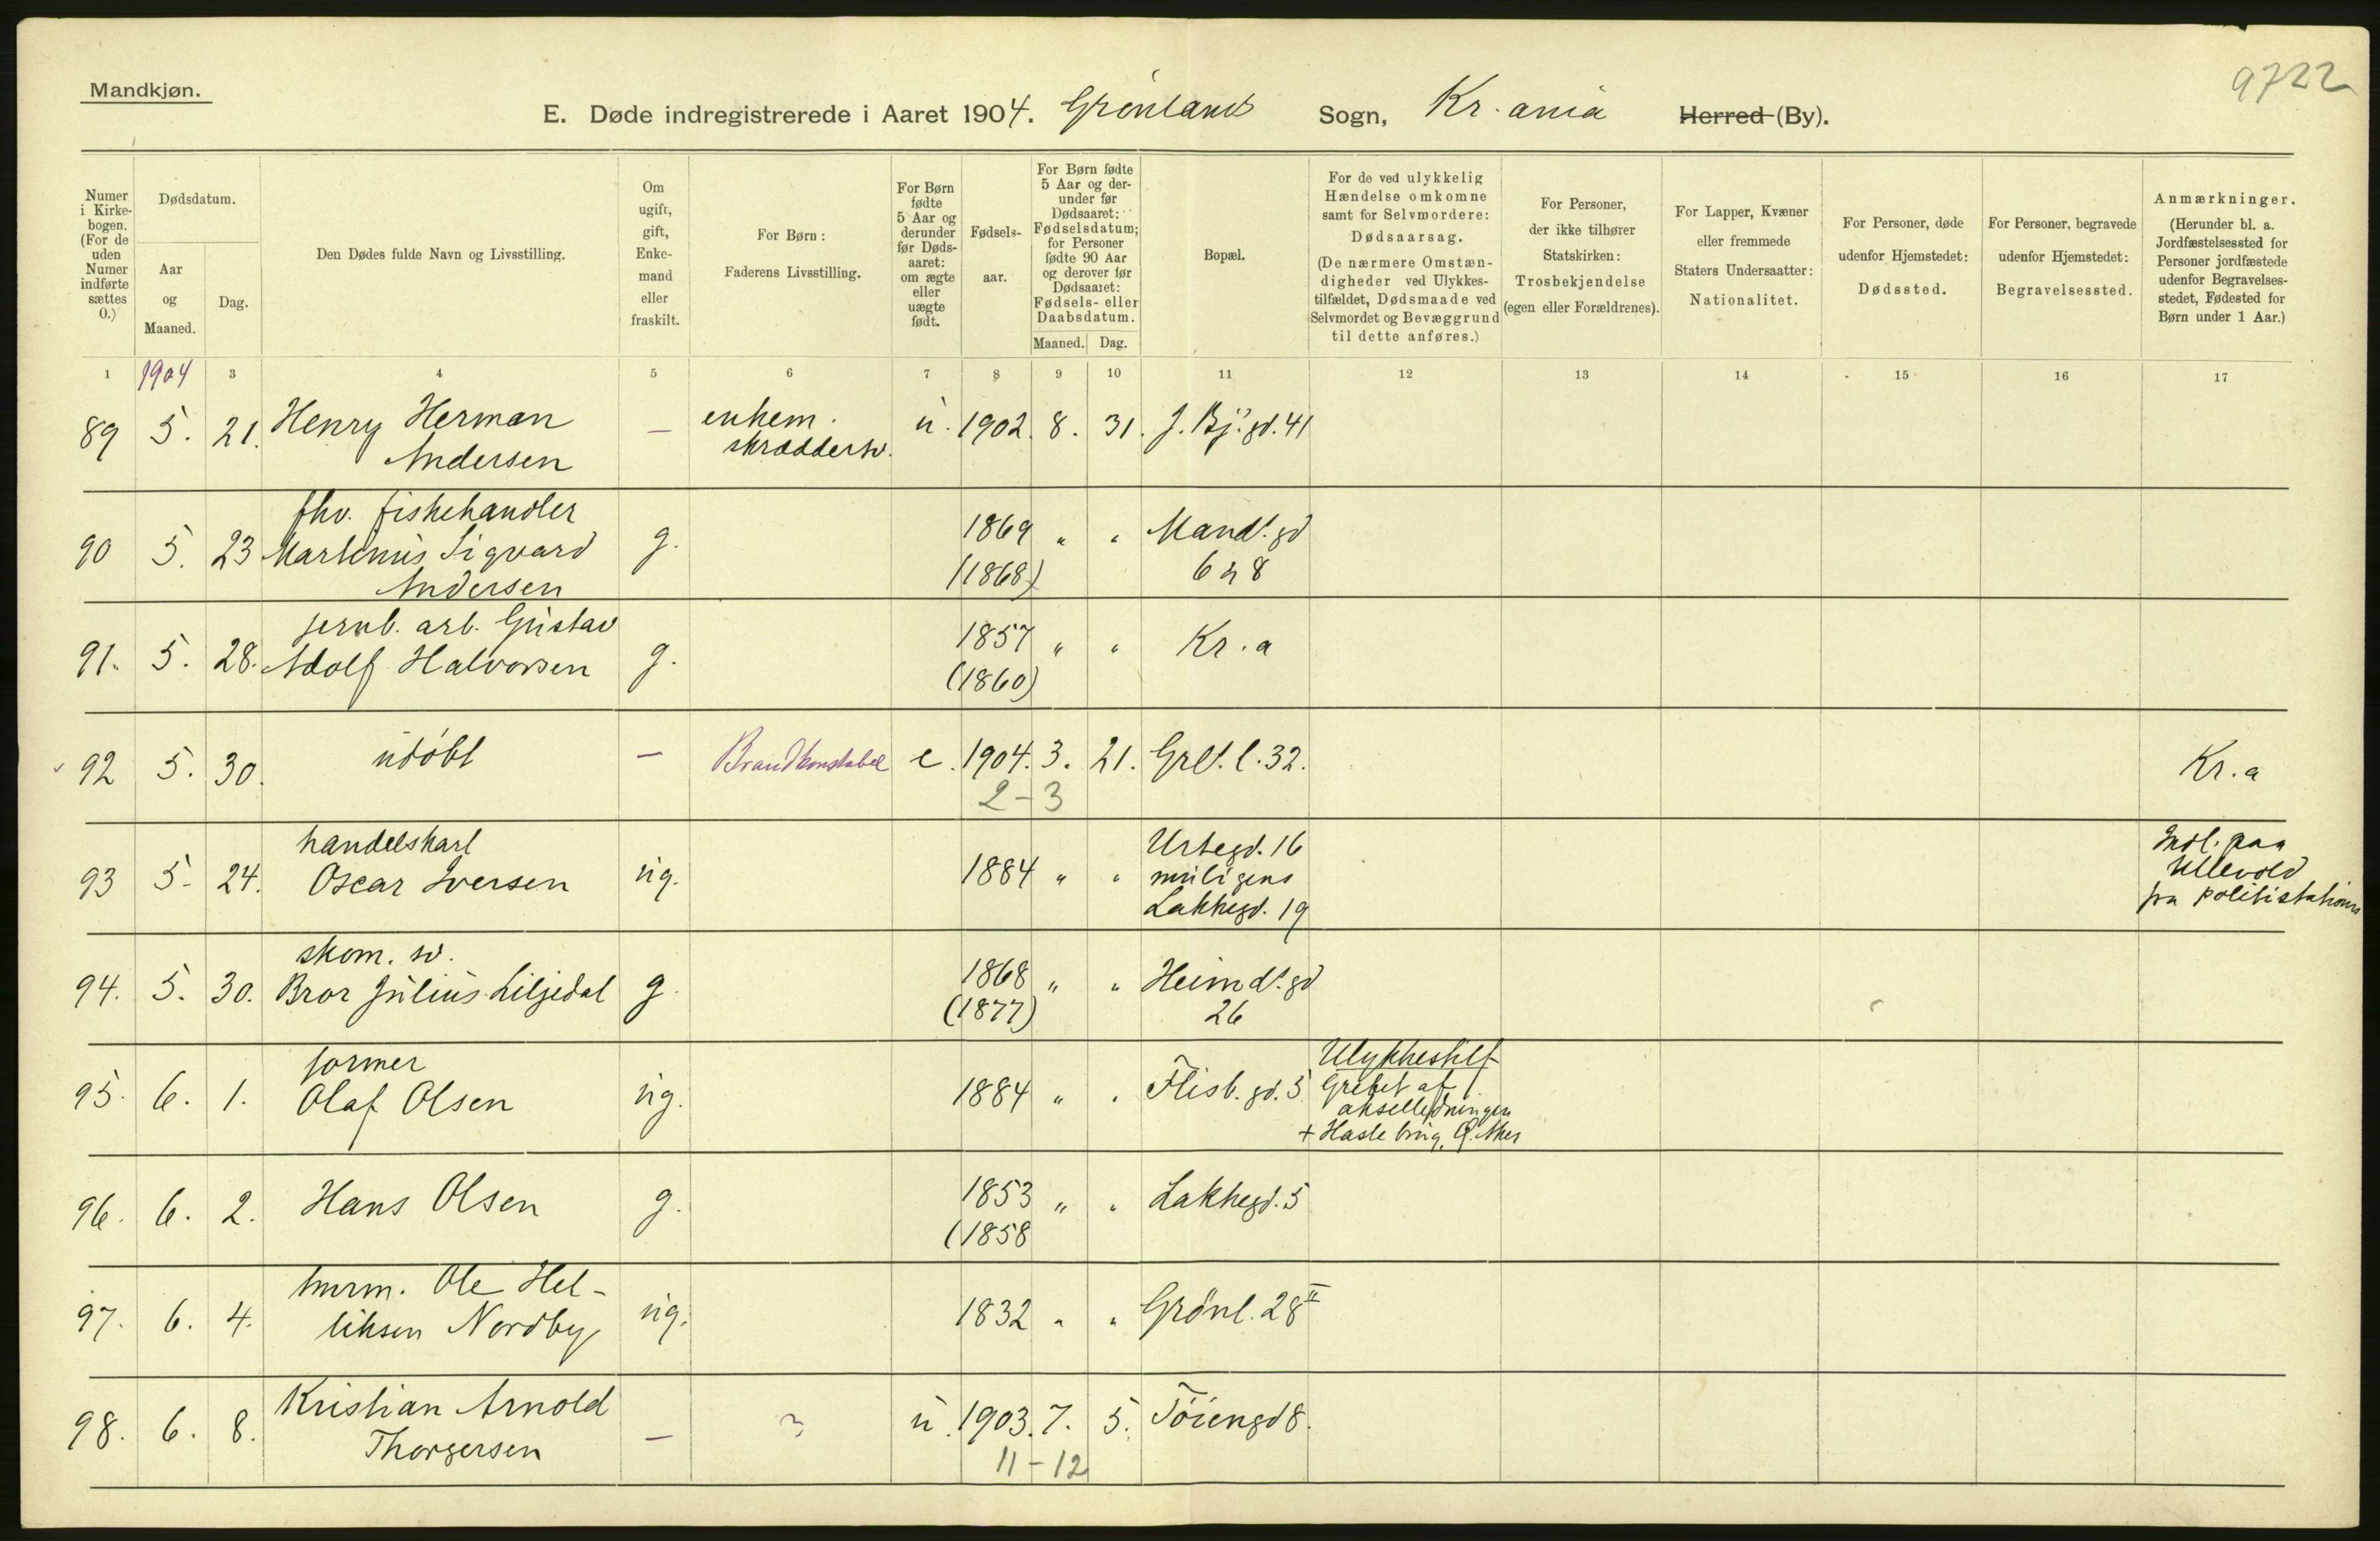 9722
Mandkjøn.
E. Døde indregistrerede i Aaret 1904. Grönlands Sogn, Kr.ania Herred (By).
Numer i Kirke-bogen. (For de uden Numer indførte sættes 0.)
Dødsdatum.
Aar og Maaned.
Dag.
Den Dødes fulde Navn og Livsstilling.
Om ugift, gift, Enke-mand eller fraskilt.
For Børn: Faderens Livsstilling.
For Børn fødte 5 Aar og derunder før Døds-aaret: om ægte eller uægte født.
Fødsels-aar.
For Børn fødte 5 Aar og der-under før Dødsaaret: Fødselsdatum; for Personer fødte 90 Aar og derover før Dødsaaret: Fødsels- eller Daabsdatum.
Maaned. Dag.
Bopæl.
For de ved ulykkelig Hændelse omkomne samt for Selvmordere: Dødsaarsag. (De nærmere Omstæn-digheder ved Ulykkes-tilfældet, Dødsmaade ved Selvmordet og Bevæggrund til dette anføres.)
For Personer, der ikke tilhører Statskirken: Trosbekjendelse (egen eller Forældrenes).
For Lapper, Kvæner eller fremmede Staters Undersaatter: Nationalitet.
For Personer, døde udenfor Hjemstedet: Dødssted.
For Personer, begravede udenfor Hjemstedet: Begravelsessted.
Anmærkninger. (Herunder bl. a. Jordfæstelsessted for Personer jordfæstede udenfor Begravelses-stedet, Fødested for Børn under 1 Aar.)
1 1904 3 4 5 6 7 8 9 10 11 12 13 14 15 16 17
89 5. 21. Henry Herman — enkem. u. 1902. 8. 31. J. Bj. gd. 41
Andersen skræddersv.
fhv. fiskehandler
90 5. 23 Martinius Sigvard g. 1869 " " Mandt. gd
Andersen (1868) 6 & 8
jernb. arb. Gustav
91. 5. 28. Adolf Halvorsen g. 1857 " " Kr.a
(1860)
92 5. 30. udöbt — Brandkonstabel e. 1904. 3. 21. Grl. l. 32. Kr.a
2-3
handelskarl Urtegd. 16
93 5- 24. Oscar Iversen ug. 1884 " " muligens
Lakkegd. 19
Indl. paa
Ullevold
fra politistationen
skom. sv.
94. 5. 30. Bror Julius Liljedal g 1868 " " Heimd. gd
(1877) 26
former Ulykkestilf
95. 6. 1. Olaf Olsen ug. 1884 " " Flisb. gd. 5 Grebet af
akselledningen
+ Hasle brug, Ø. Aker
96. 6. 2. Hans Olsen g. 1853 " " Lakkegd. 5
(1858
murm. Ole Hel-
97. 6. 4. liksen Nordby ug. 1832 " " Grönl. 28 II
98. 6. 8. Kristian Arnold — ? u. 1903. 7. 5. Töiengd 8.
Thorgersen 11-12